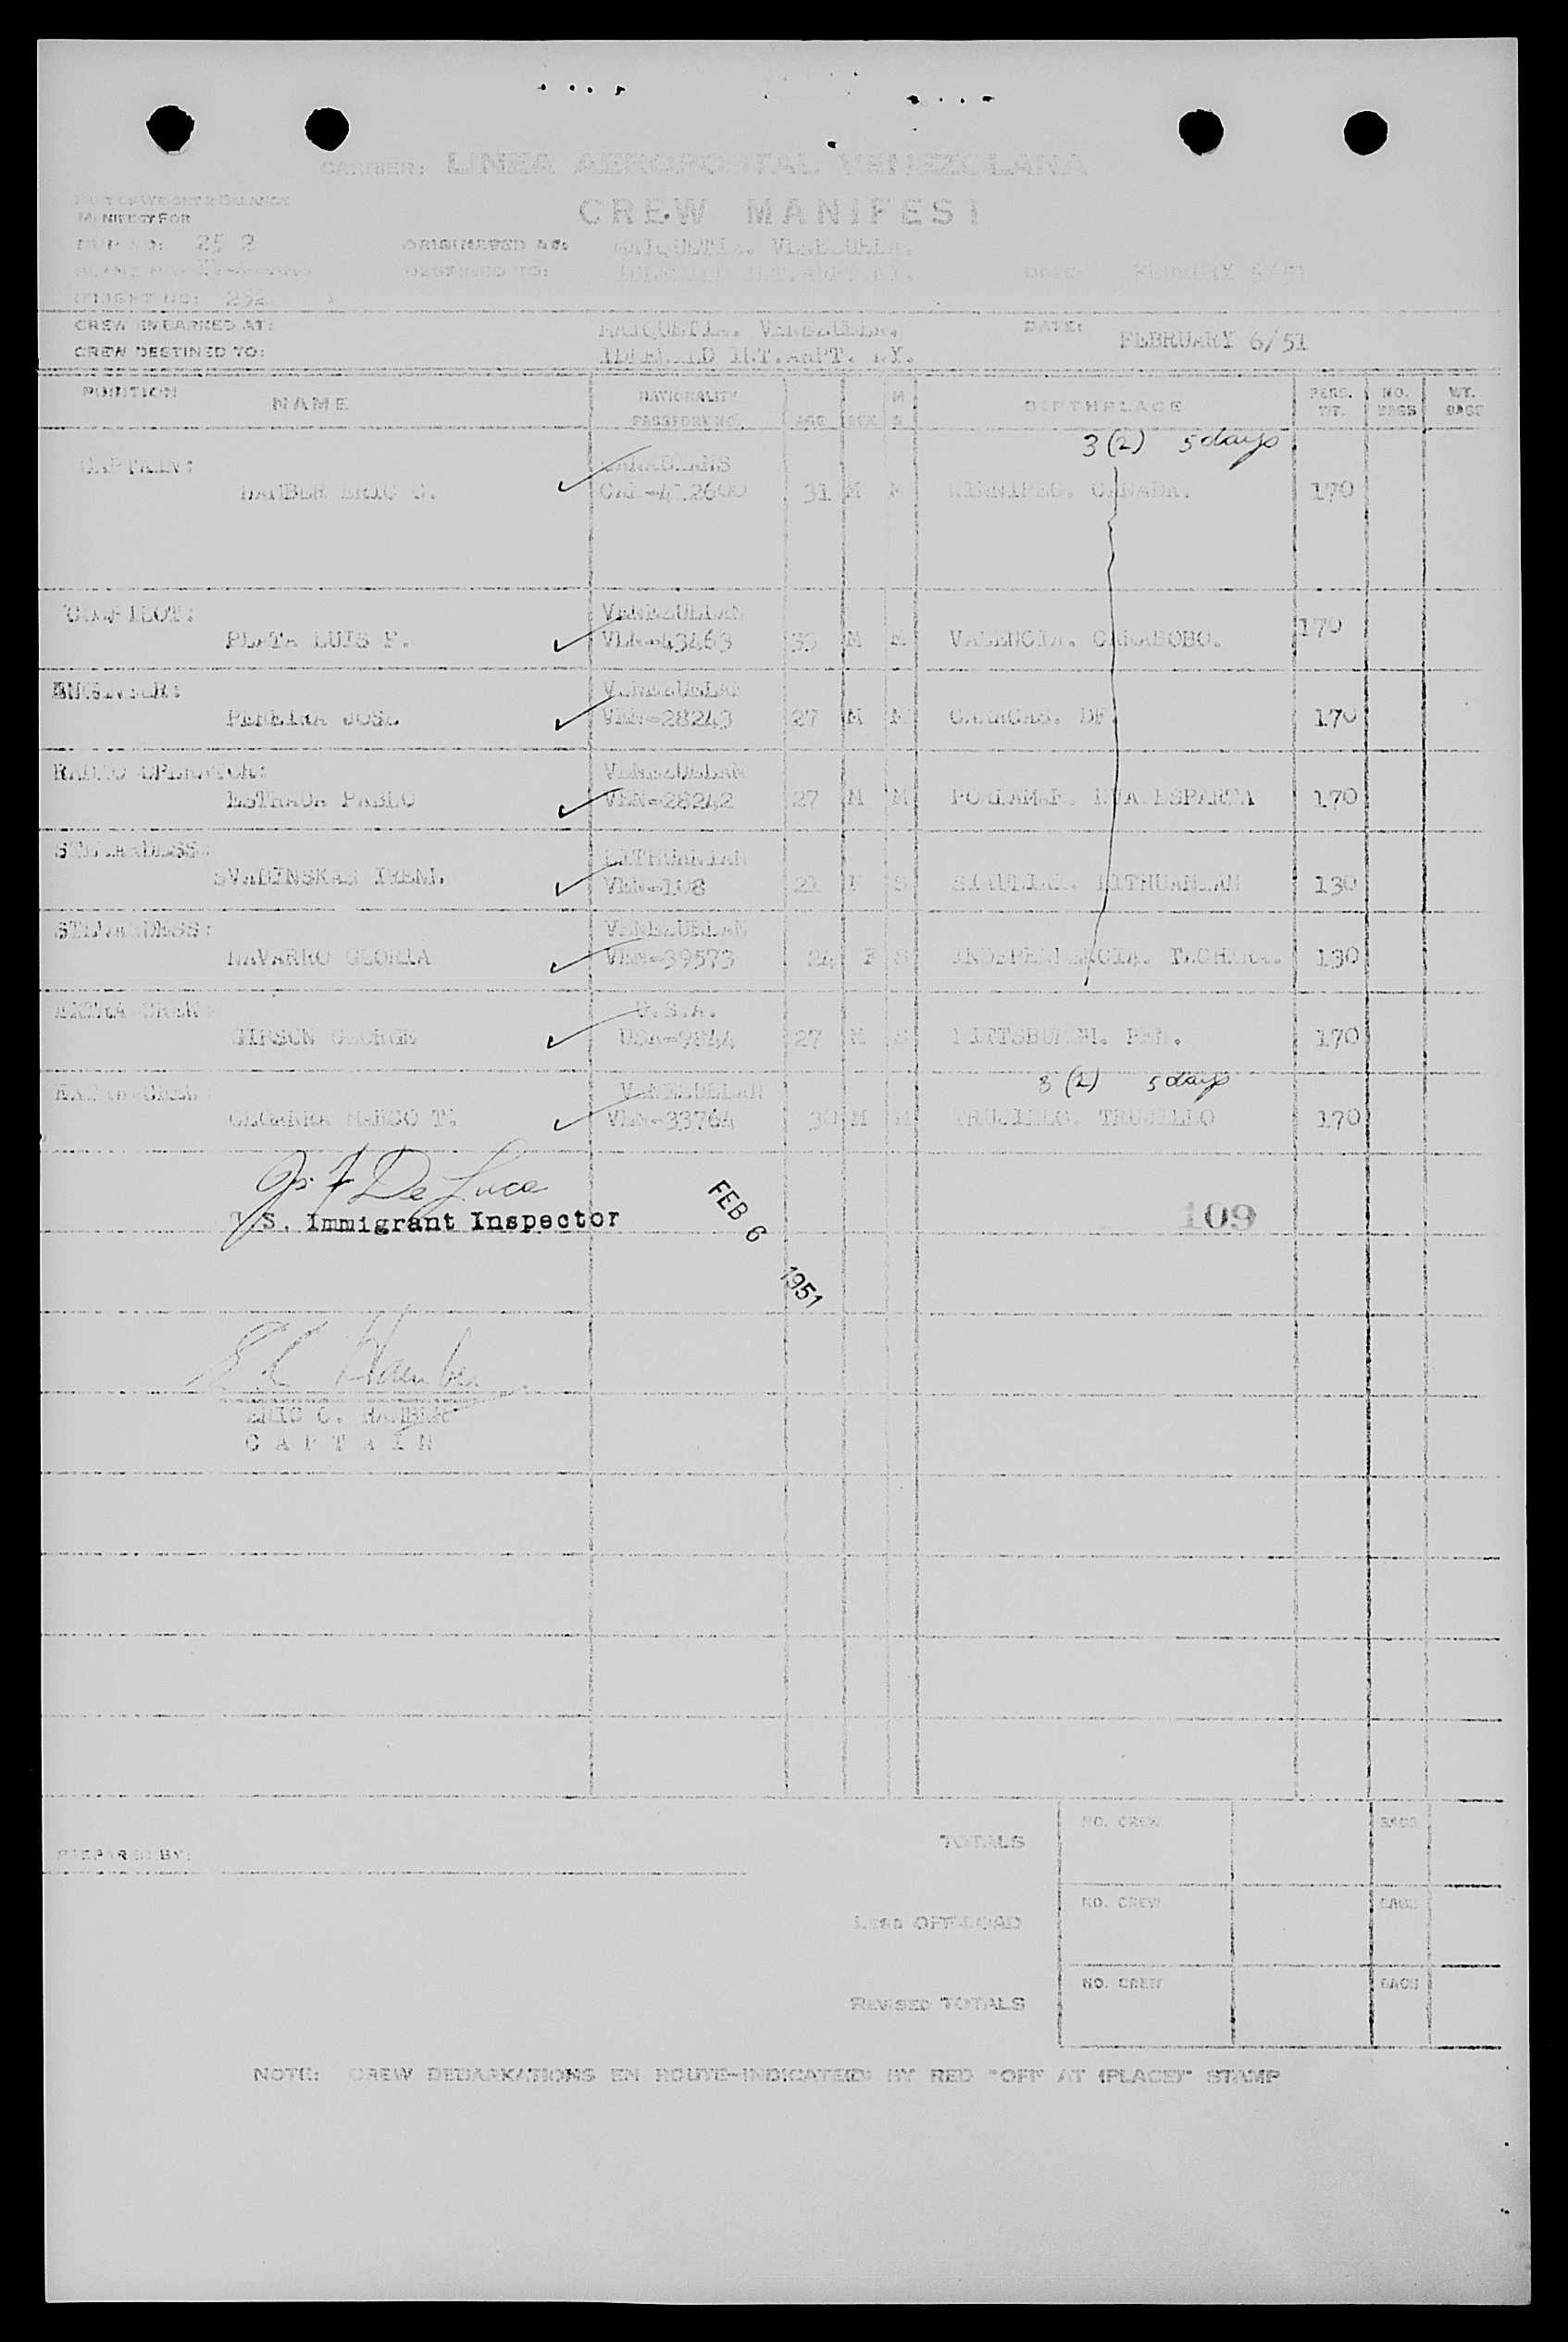 CARRIER: LINEA AEROPOSTAL VENEZOLANA
PART OF WEIGHT & BALANCE
MANIFEST FOR
CREW MANIFEST
TRIP NO: 25 2 ORIGINATED AT: MAIQUETIA. VENEZUELA.
PLANE NO: DESTINED TO: IDLEWILD INT.ARPT NY. DATE: FEBRUARY 6/51
FLIGHT NO: 252
CREW EMBARKED AT: MAIQUETIA. VENEZUELA. DATE: FEBRUARY 6/51
CREW DESTINED TO: IDLEWILD INT.ARPT. N.Y.
POSITION NAME NATIONALITY PASSPORT NO. AGE SEX M S BIRTHPLACE PERS. WT. NO. BAGS WT. BAGS
3 (2) 5 days
CAPTAIN: CANADIANS
HAMBER ERIC C. CAN-412600 31 M M WINNIPEG. CANADA. 170
CO-PILOT: VENEZUELIAN
PLATA LUIS F. VEN-43463 33 M M VALENCIA. CARABOBO. 170
ENGINEER: VENEZUELAN
PEREIRA JOSE VEN-28243 27 M M CARACAS. DF. 170
RADIO OPERATOR: VENEZUELAN
ESTRADA PABLO VEN-28242 27 M M PORLAMAR. NVA.ESPARTA 170
STEWARDESS: LITHUANIAN
SVABINSKAS IRENA. VEN-108 21 F S SIAULIAI. LITHUANIAN 130
STEWARDESS: VENEZUELAN
NAVARRO GLORIA VEN-39573 24 F S INDEPENDENCIA. TACHIRA. 130
EXTRA CREW: U.S.A.
GIBSON GEORGE USA-9844 27 M PITTSBURGH. PEN. 170
3 (2) 5 days
EXTRA CREW: VENEZUELAN
MARCO T. VEN-33764 30 M M TRUJILLO. TRUJILLO 170
Jos F De Luca
U.S. Immigrant Inspector
FEB 6 1951
109
E C Hamber
ERIC C. HAMBER
CAPTAIN
TOTALS NO. CREW BAGS
PREPARED BY:
LESS OFF-LOAD NO. CREW BAGS
REVISED TOTALS NO. CREW BAGS
NOTE: CREW DEBARKATIONS EN ROUTE-INDICATED BY RED "OFF AT (PLACE)" STAMP